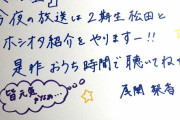 今夜の放送は2期生松田と
ホシオタ紹介をやりますー!!
是非おうち時間で聴いてね
皆元気
かなぁ...
尾関梨香